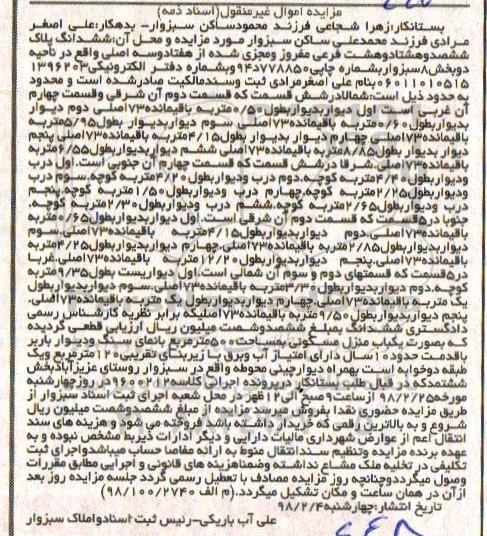 مزایده اموال غیرمنقول(اسناد ذمه)
بستانکار:زهرا شجاعی فرزند محمودساکن سبزوار– بدهکار:علی اصغر
مرادی فرزند محمدعلی ساکن سبزوار مورد مزایده و محل آن:ششدانگ پلاک
ششصدوهشتادوهشت فرعی مفروز ومجزی شده از هفتادوسه اصلی واقع در ناحیه
دوبخش۸سبزواربشماره چاپی۷۷۸۸۵۰د۹۴وبشماره دفتر الکترونیکی۱۳۹۶۲۰۳
۰۶۰۱۱۰۱۰۵۱۵بنام علی اصغرمرادی ثبت وسندمالکیت صادرشده است و محدود
به حدود ذیل است:شمالادرشش قسمت که قسمت دوم آن شرقی وقسمت چهارم
آن غربی است. اول دیوار بدیواربطول۰/۵۰متربه باقیمانده۷۳اصلی دوم دیوار
بدیواربطول۰/۶۰متربه باقیمانده۷۳اصلی سوم دیواربدیوار بطول۵/۹۵متربه
باقیمانده۷۳اصلی چهارم دیوار بدیوار بطول۴/۱۵متربه باقیمانده۷۳اصلی پنجم
دیوار بدیوار بطول۸/۸۵متربه باقیمانده۷۳اصلی ششم دیواربدیواربطول۶/۵۵متربه
باقیمانده۷۳اصلی شرقا درشش قسمت که قسمت چهارم آن جنوبی است.اول درب
ودیواربطول۴/۴۰متربه کوچه.دوم درب ودیواربطول۴/۲۰متربه کوچه.سوم درب
ودیواربطول۲/۲۵متربه کوچه.چهارم درب ودیواربطول۱/۵۰متربه کوچه.پنجم
درب ودیواربطول۲/۶۵متربه کوچه.ششم درب ودیواربطول۲/۳۰متربه کوچه.
جنوبا در۵قسمت که قسمت دوم آن شرقی است.اول دیواربدیواربطول۰/۶۵متربه
باقیمانده۷۳اصلی.دوم دیواربدیواربطول۴/۱۵متربه باقیمانده۷۳اصلی.سوم
دیواربدیواربطول۲/۸۵متربه باقیمانده۷۳اصلی.چهارم دیواربدیواربطول۴/۲۵متربه
باقیمانده۷۳اصلی.پنجم دیواربدیواربطول۱۲/۲۰متربه باقیمانده۷۳اصلی.غربا
در۵قسمت که قسمتهای دوم و سوم آن شمالی است.اول دیواریست بطول۹/۳۵متربه
کوچه.دوم دیواربدیواربطول۳/۳۰متربه باقیمانده۷۳اصلی.سوم دیواربدیواربطول
یک متربه باقیمانده۷۳اصلی.چهارم دیواربدیواربطول یک متربه باقیمانده۷۳اصلی.
پنجم دیواربدیواربطول۹/۵۰متربه باقیمانده۷۳اصلیکه برابر نظریه کارشناس رسمی
دادگستری ششدانگ بمبلغ ششصدوشصت میلیون ریال ارزیابی قطعی گردیده
که بصورت یکباب منزل مسکونی بمساحت۵۰۰مترمربع بانمای سنگ ودیوار باربر
باقدمت حدود۱۰سال دارای امتیاز آب وبرق با زیربنای تقریبی۱۲۰مترمربع ویک
طبقه دوخوابه است بهمراه دیوارچینی محوطه واقع در سبزوار روستای عزیزآبادبخش
ششتمدکه در قبال طلب بستانکار درپرونده اجرائی کلاسه۹۶۰۰۲۰۲درروزچهارشنبه
مورخه۹۸/۲/۲۵ازساعت۹صبح الی۱۲ظهر در محل شعبه اجرای ثبت اسناد سبزوار از
طریق مزایده حضوری نقدا بفروش میرسد.مزایده از مبلغ ششصدوشصت میلیون ریال
شروع و به بالاترین رقمی که خریدار داشته باشد فروخته می شود. هزینه های سند
انتقال اعم از عوارض شهرداری مالیات دارایی و دیگر ادارات ذیربط مشخص نبوده و به
عهده برنده مزایده وتنظیم سندانتقال منوط به ارائه مفاصا حساب میباشدواجرای ثبت
تکلیفی در تخلیه ملک مشاع نداشته وضمناهزینه های قانونی و اجرایی مطابق مقررات
وصول میگرددوچنانچه روز مزایده مصادف با تعطیل رسمی گردد جلسه مزایده روز بعد
ازآن در همان ساعت و مکان تشکیل میگردد.(م الف ۹۸/۱۰۰/۲۷۴۰)
تاریخ انتشار:چهارشنبه۹۸/۲/۴
علی آب باریکی–رئیس ثبت اسنادواملاک سبزوار